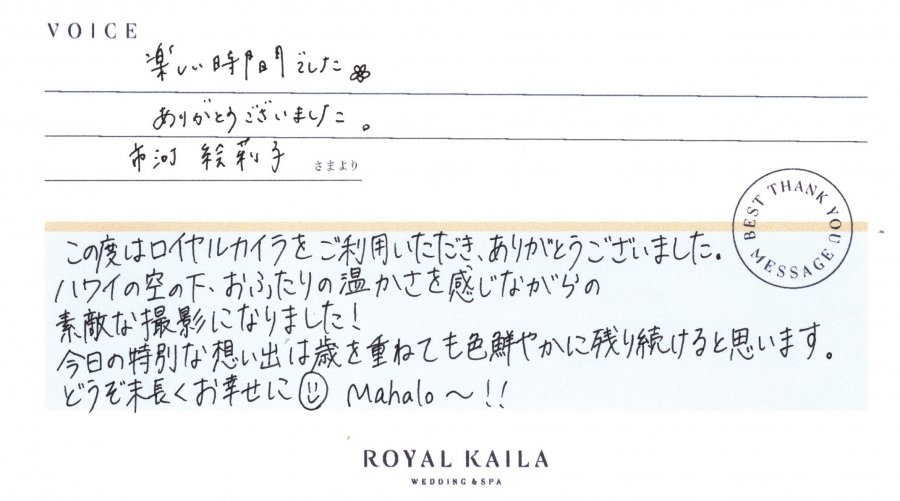 VOICE
楽しい時間でした
ありがとうございました。
市河 絵莉子 さまより
BEST THANK YOU MESSAGE
この度はロイヤルカイラをご利用いただき、ありがとうございました。
ハワイの空の下、おふたりの温かさを感じながらの
素敵な撮影になりました!
今日の特別な想い出は歳を重ねても色鮮やかに残り続けると思います。
どうぞ末長くお幸せに Mahalo〜!!
ROYAL KAILA
WEDDING & SPA